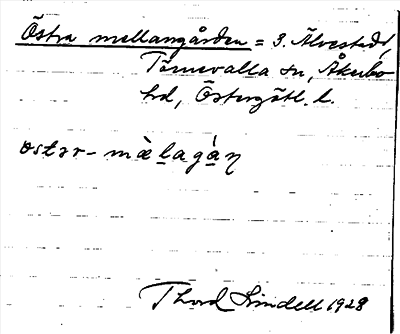 Östra mellangården = 3. Älvestad,
Törnevalla sn, Åkerbo
hd, Östergötl. l.
ostər-mὰlagάη
Thord Lindell 1928